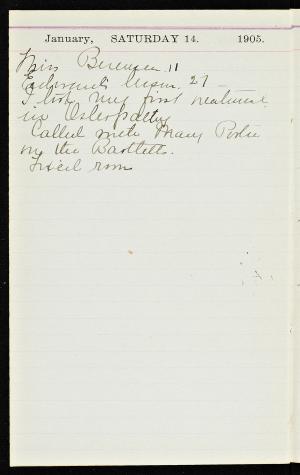 January, SATURDAY 14. 1905.
Miss Berenson 11
27 -
I took my first treatment
in Osteopathy
Called with Mary Porter
on the Bartletts.
Fixed room